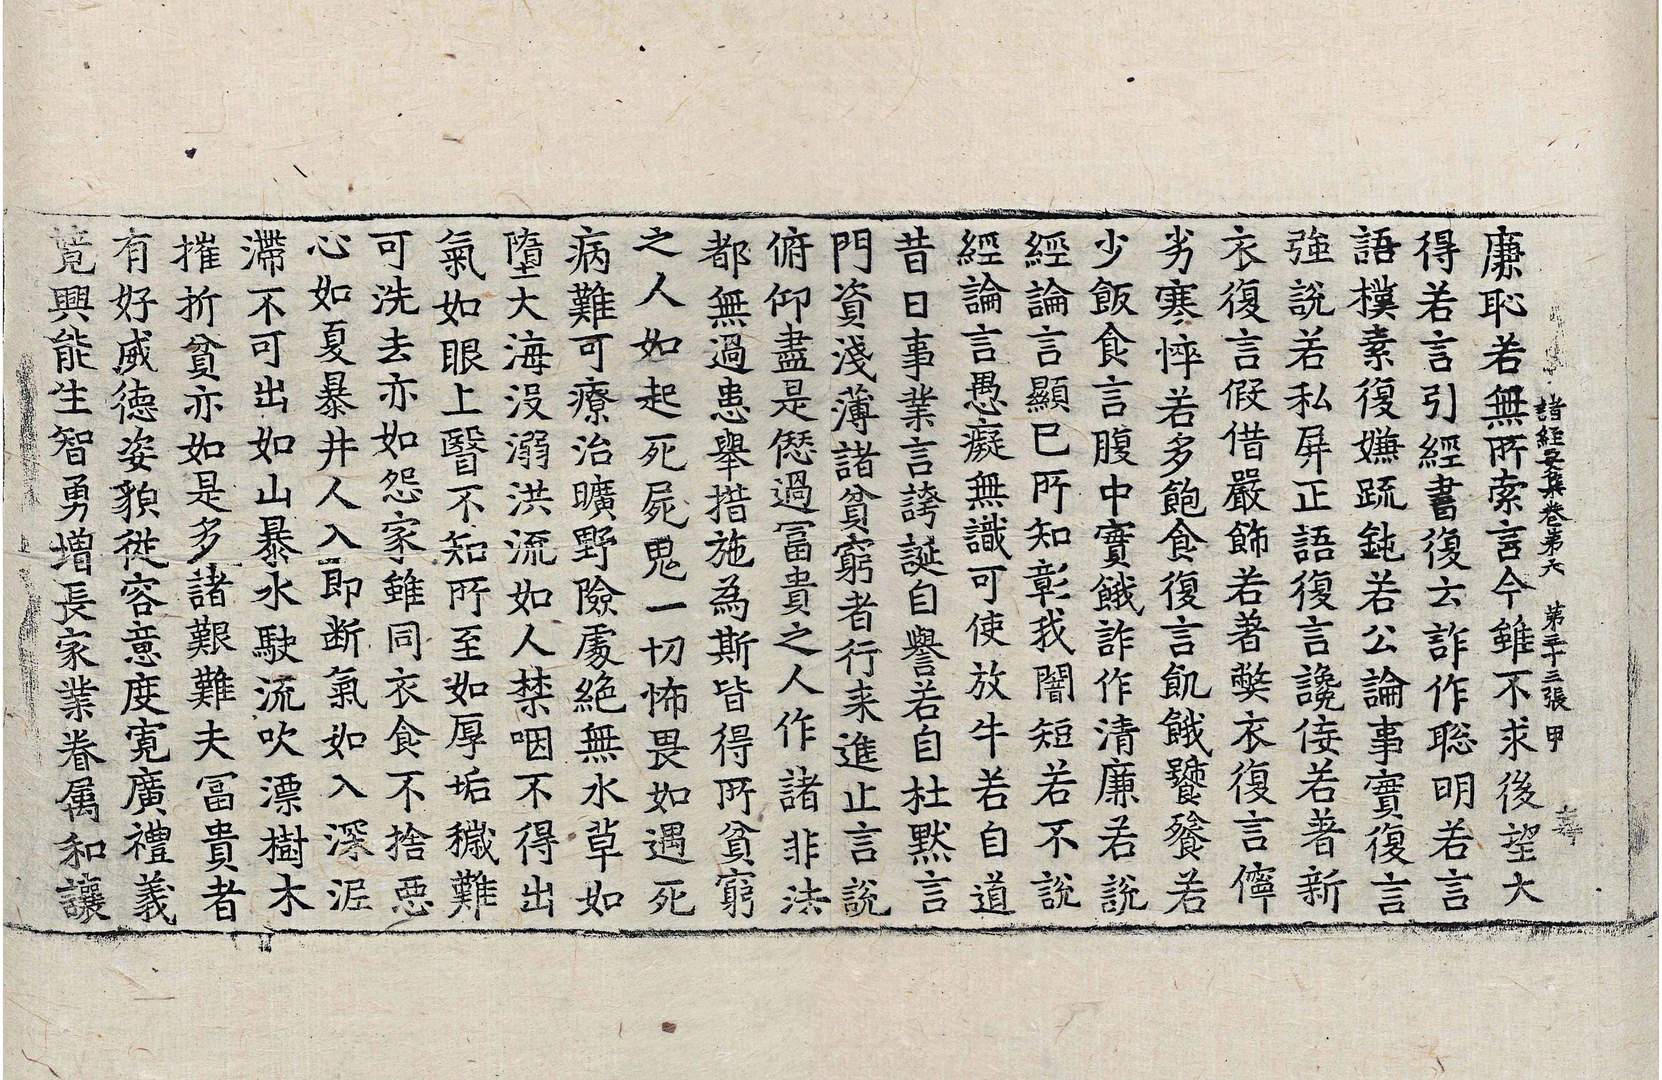 諸經要集卷第六 第三十三張 甲
廉恥若無所索言今雖不求後望大
得若言引經書復云詐作聡明若言
語樸素復嫌疏鈍若公論事實復言
強說若私屏正語復言讒佞若著新
衣復言假借嚴飾若著弊衣復言儜
劣寒悴若多飽食復言飢餓饕餮若
少飯食言腹中實餓詐作清廉若說
經論言顯已所知彰我闇短若不說
經論言愚癡無識可使放牛若自道
昔日事業言誇誕自譽若自杜默言
門資淺薄諸貧窮者行来進止言說
俯仰盡是愆過冨貴之人作諸非法
都無過患舉措施為斯皆得所貧窮
之人如起死屍鬼一切怖畏如遇死
病難可療治曠野險處絕無水草如
墮大海没溺洪流如人㯲咽不得出
氣如眼上瞖不知所至如厚垢穢難
可洗去亦如怨家雖同衣食不捨惡
心如夏暴井人入即断氣如入深泥
滯不可出如山暴水駛流吹漂樹木
摧折貧亦如是多諸艱難夫冨貴者
有好威徳姿貌從容意度寛廣禮義
競興能生智勇増長家業眷属和讓